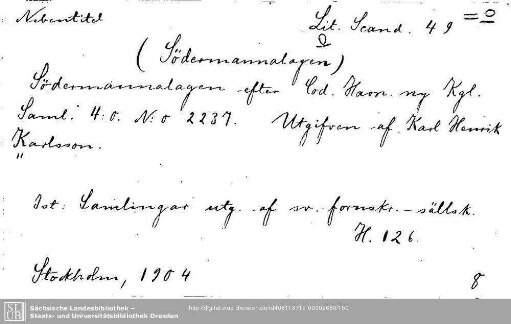 Nebentitel
Lit. Scand. 49 = 0
(Södermannalagen)
Södermannalagen efter Cod. Havn. ny Kgl.
Saml. 4:o. N:o 2237. Utgifven af Karl Henrik
Karlsson.
Ist: Samlingar utg. af sv. fornskr.-sällsk.
H. 126.
Stockholm, 1904
8
Sächsische Landesbibliothek –
Staats- und Universitätsbibliothek Dresden